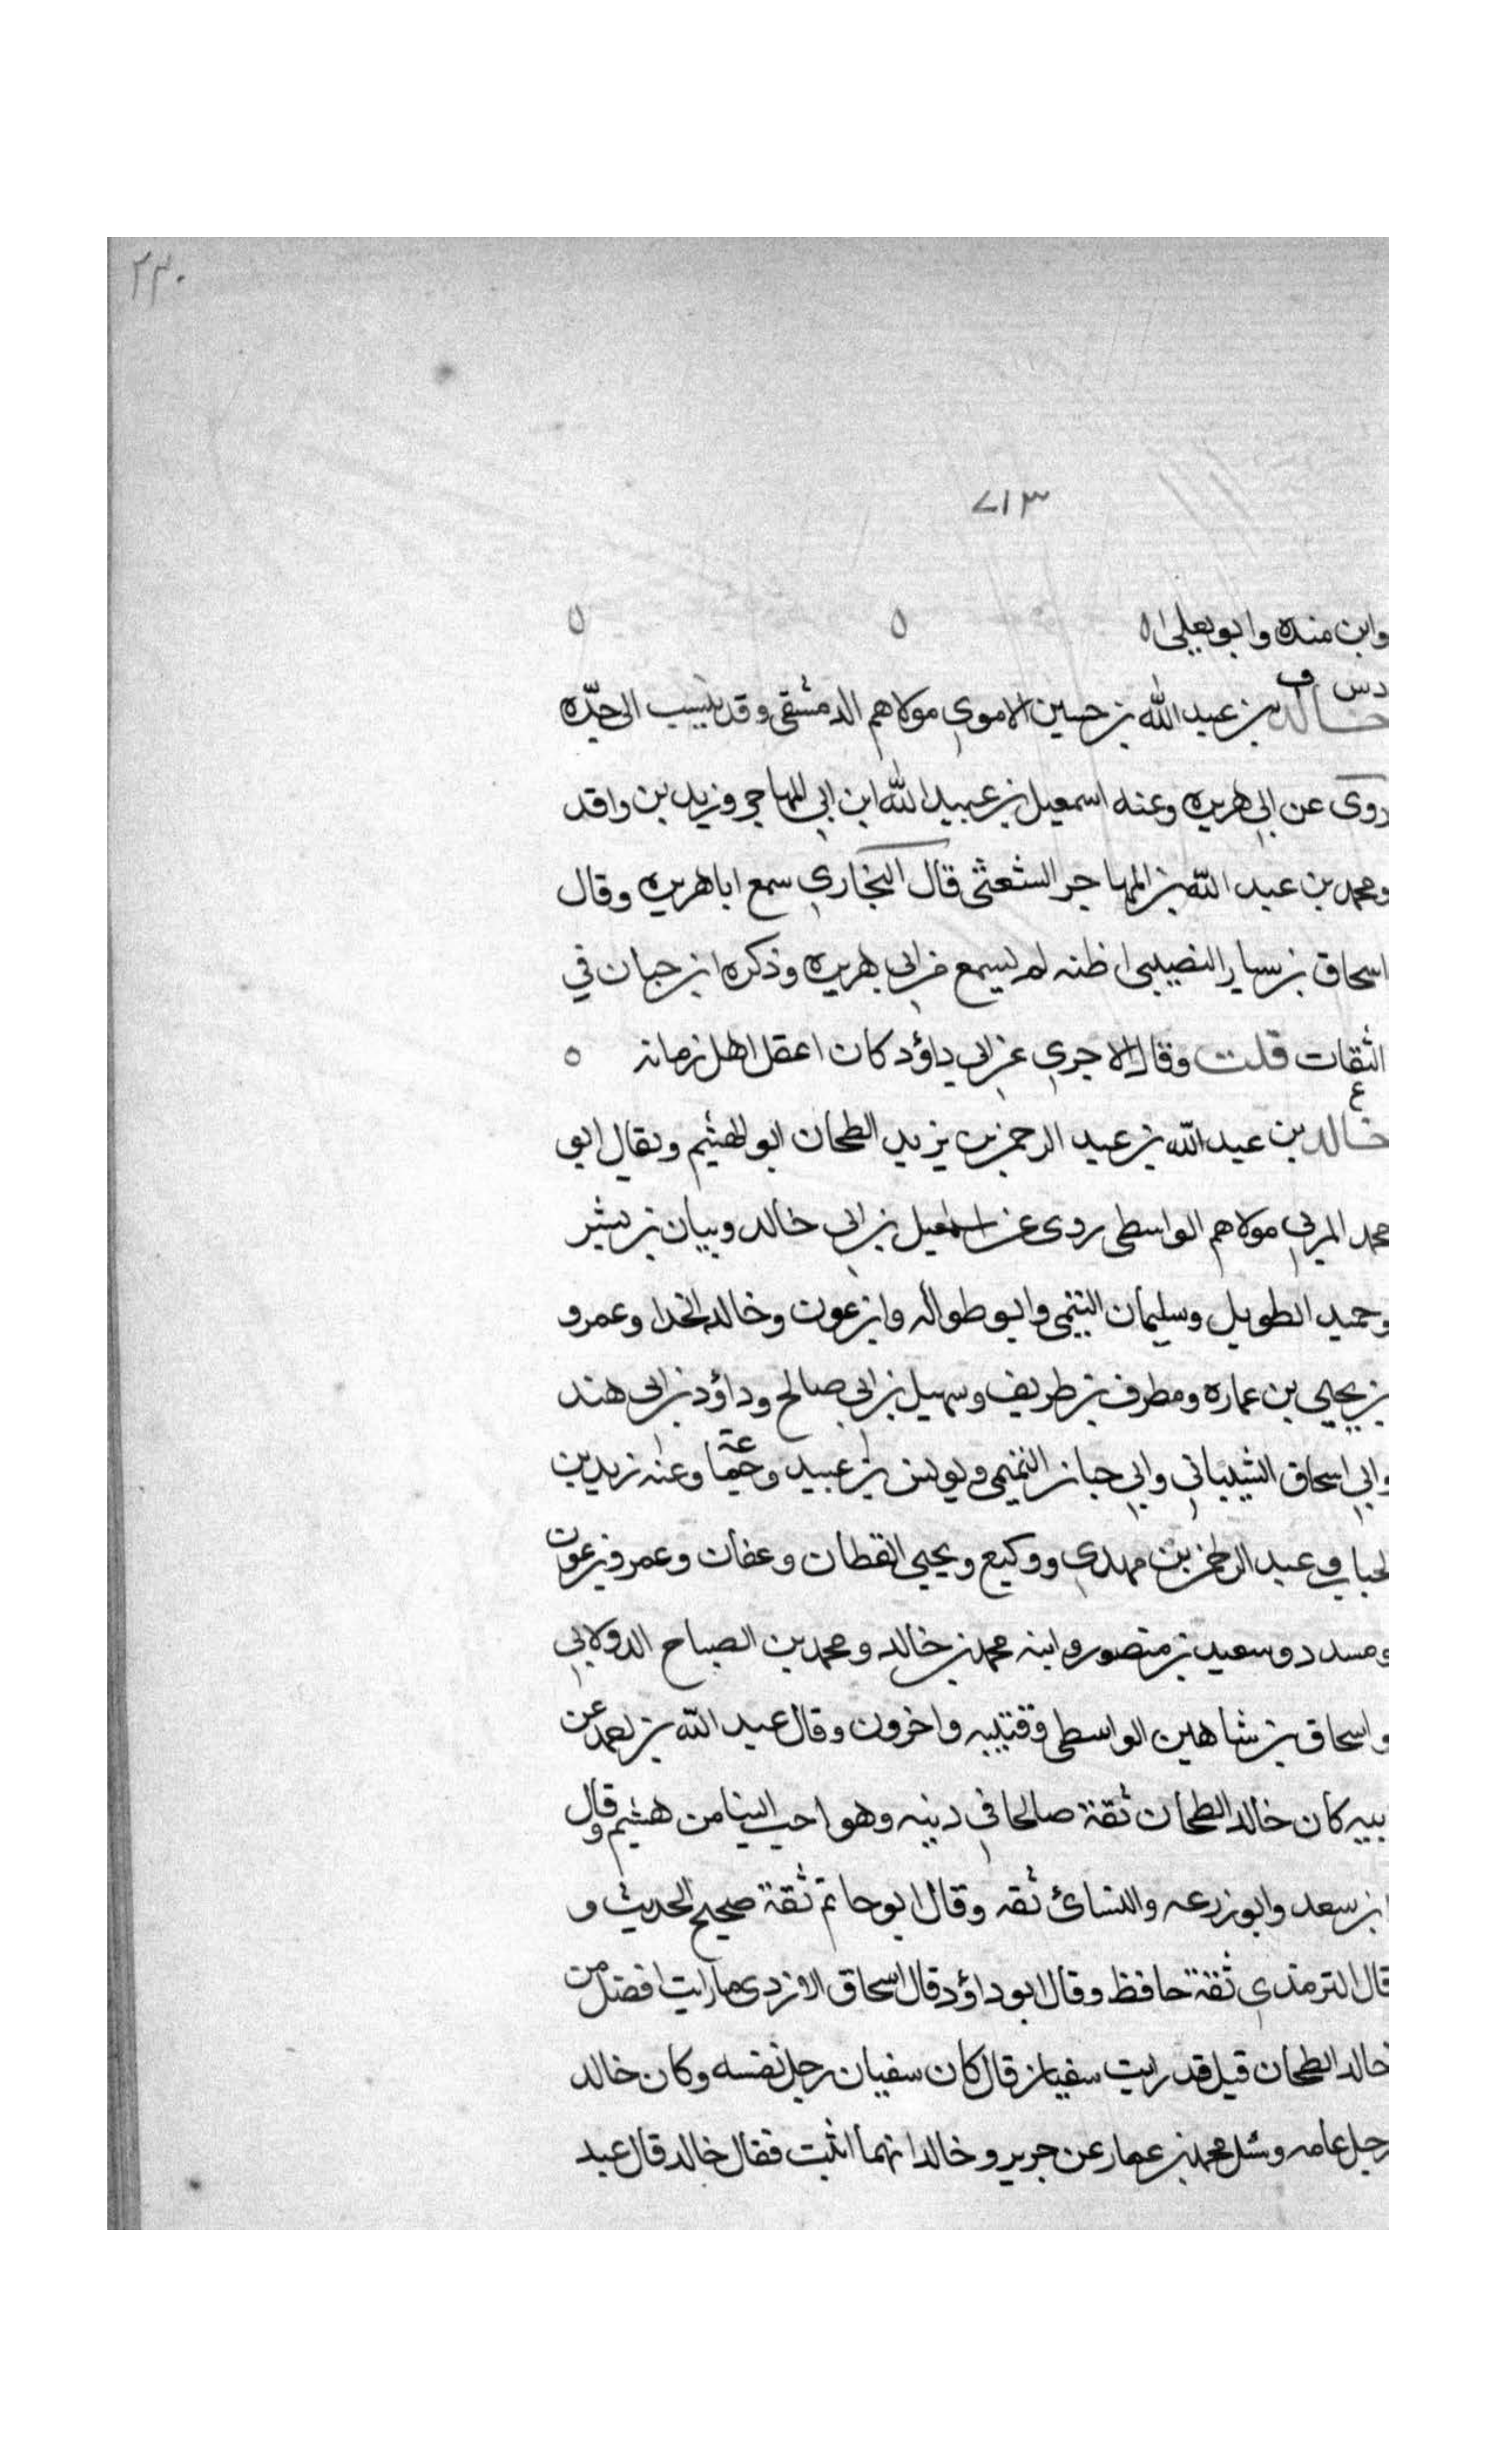 ٢٣٠
٧١٣
وابن منده وابو يعلى ه ه ه
د س ق
خالد بن عبد الله بن حسين الاموي مولاهم الدمشقي وقد ينسب الى جدّه
روى عن ابي هريره وعنه اسمعيل بن عبيد الله ابن ابي المهاجر وزيد بن واقد
ومحمد بن عبد الله بن المهاجر الشعثى قال البخاري سمع ابا هريره وقال
اسحاق بن سيار النصيبي اظنه لم يسمع من ابي هريره وذكره ابن حبان في
الثقات قلت وقال الاجري عن ابي داؤد كان اعقل اهل زمانه ه
ع
خالد بن عبد الله بن عبد الرحمن بن يزيد الطحان ابو الهيثم ويقال ابو
محمد المزني مولاهم الواسطي روى عن اسمعيل بن ابي خالد وبيان بن بشر
وحميد الطويل وسليمان التيمي وابو طواله وابن عون وخالد الحذا وعمرو
بن يحيى بن عماره ومطرف بن طريف وسهيل بن ابي صالح وداؤد بن ابي هند
وابي اسحاق الشيباني وابي حيان التيمي ويونس بن عبيد وجماعة وعنه زيد بن
لحباب وعبد الرحمن بن مهدي ووكيع ويحيى القطان وعفان وعمرو بن عون
ومسدد وسعيد بن منصور وابنه محمد بن خالد ومحمد بن الصباح الدولابي
واسحاق بن شاهين الواسطي وقتيبه واخرون وقال عبد الله بن احمد عن
بيه كان خالد الطحان ثقة صالحا في دينه وهو احب الينا من هشيم وقال
ابن سعد وابو زرعه والنسائ ثقه وقال ابو حاتم ثقة صحيح الحديث و
قال الترمذي ثقة حافظ وقال ابو داؤد قال اسحاق الازدى ما رايت افضل من
خالد الطحان قيل قد رايت سفيان قال كان سفيان رجل نفسه وكان خالد
رجل عامه وسئل محمد بن عمار عن جرير وخالد ايهما اثبت فقال خالد قال عبد